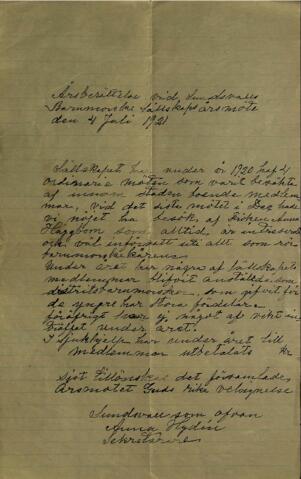 Årsberättelse vid Sundsvalls
Barnmorske Sällskaps årsmöte
den 4 Juli 1921
Sällskapet har under år 1920 haft 4
ordinarie möten som varit besökta
af innom staden boende medlem
mar, vid det siste mötet i Dec hade
vi nöjet ha besök af Fröken Anna
som alltid, är intresserad
och väl införsatt uti allt som rör
barnmorskekåren.
Under året har några af sällskapets
medlemmar blifvit anstälda som
distriktsbarnmorskor, som gifvit för
de yngre har stora fördelar
föröfrigt har ej något af vikt in
träffat under året.
I sjukhjelp har under året till
medlemmar utbetalats Kr
det församlade
Årsmötet Guds rika velsignelse
Sundsvall som ofvan
Anna Hydén
Sekreterare